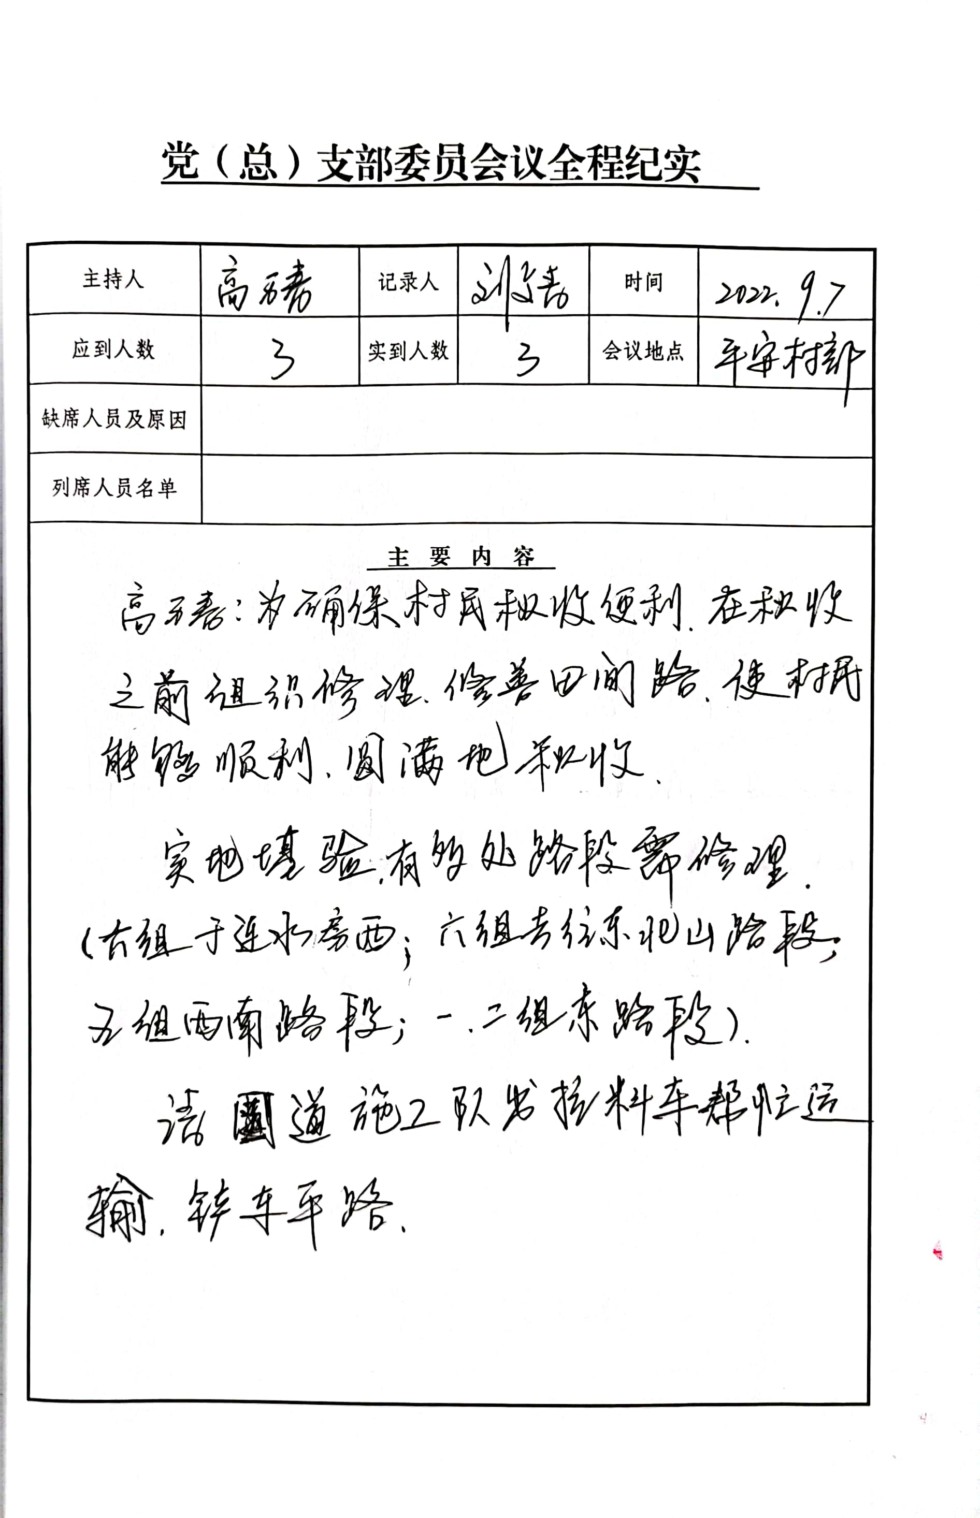 党（总）支部委员会议全程纪实
主持人 高万春 记录人 刘 时间 2022.9.7
应到人数 3 实到人数 3 会议地点 平安村部
缺席人员及原因
列席人员名单
主要内容
高万春：为确保村民秋收便利，在秋收
之前组织修理、修善田间路，使村民
能够顺利、圆满地秋收。
实地堪验，有多处路段需修理。
（六组于连水房西；六组去往东北山路段；
五组西南路段；一、二组东路段）。
请国道施工队出拉料车帮忙运
输，铲车平路。